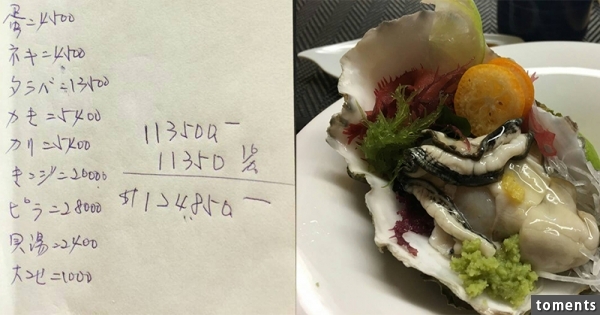 蛋=4500
ネキ=4500
タラバ=13500
カモ=5400
カリ=5400
キンジ=20000
ピラ=28000
貝湯=2400
大ゼ=1000
113500-
11350 10%
$124.850-
toments